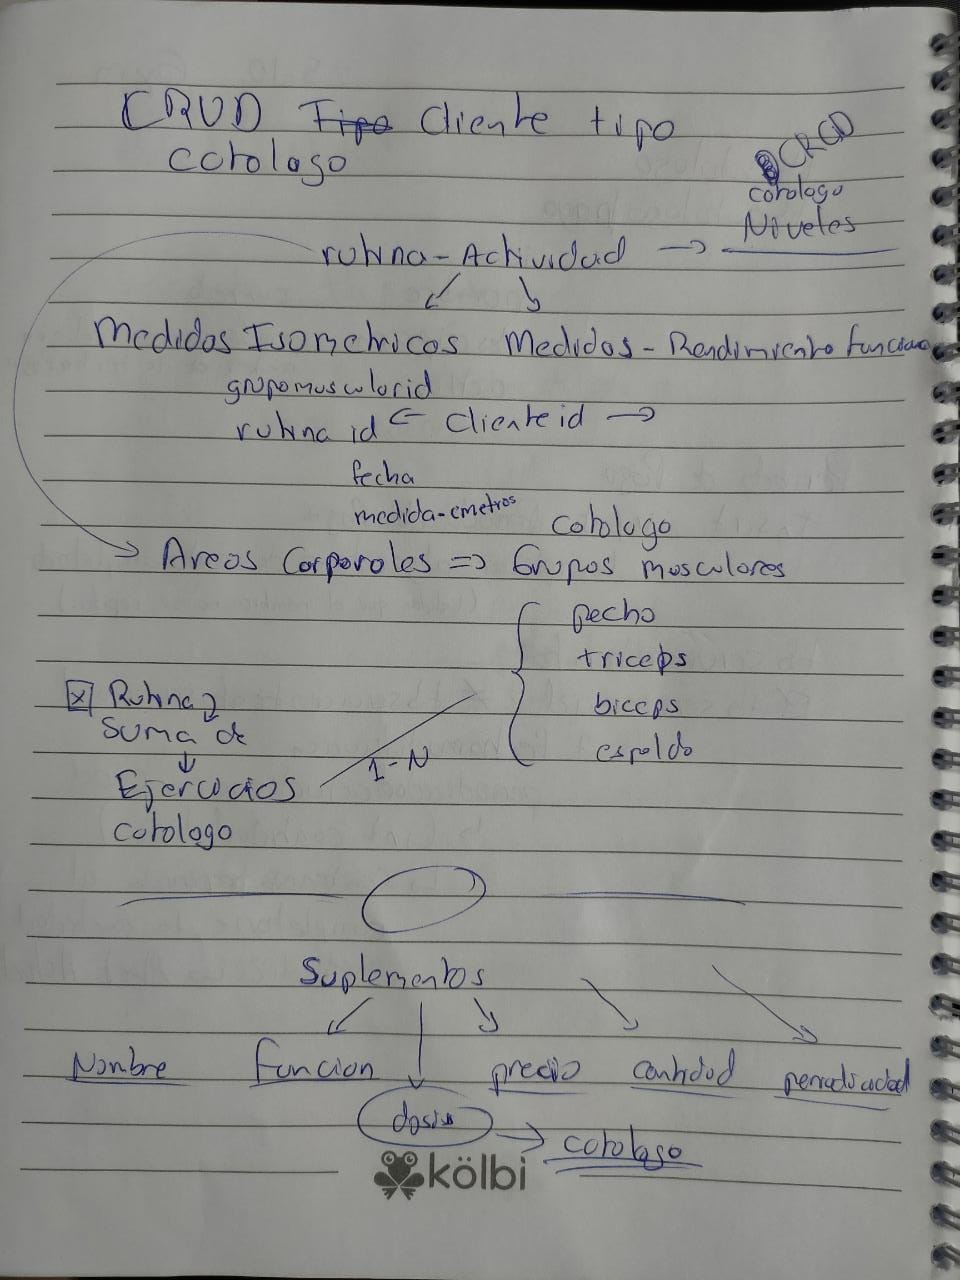 CRUD Tipo Cliente tipo
catalogo
CRCD
catalogo
Niveles
rutina - Actividad →
Medidas Isometricas Medidas - Rendimiento funciona
grupomuscularid
rutina id ← Cliente id →
fecha
medida-cmetros
catalogo
Areas Corporales => Grupos musculares
pecho
triceps
biceps
espalda
Rutina
suma de
Ejercicios
1-N
catalogo
Suplementos
Nombre funcion precio cantidad
dosis → catalogo
kölbi